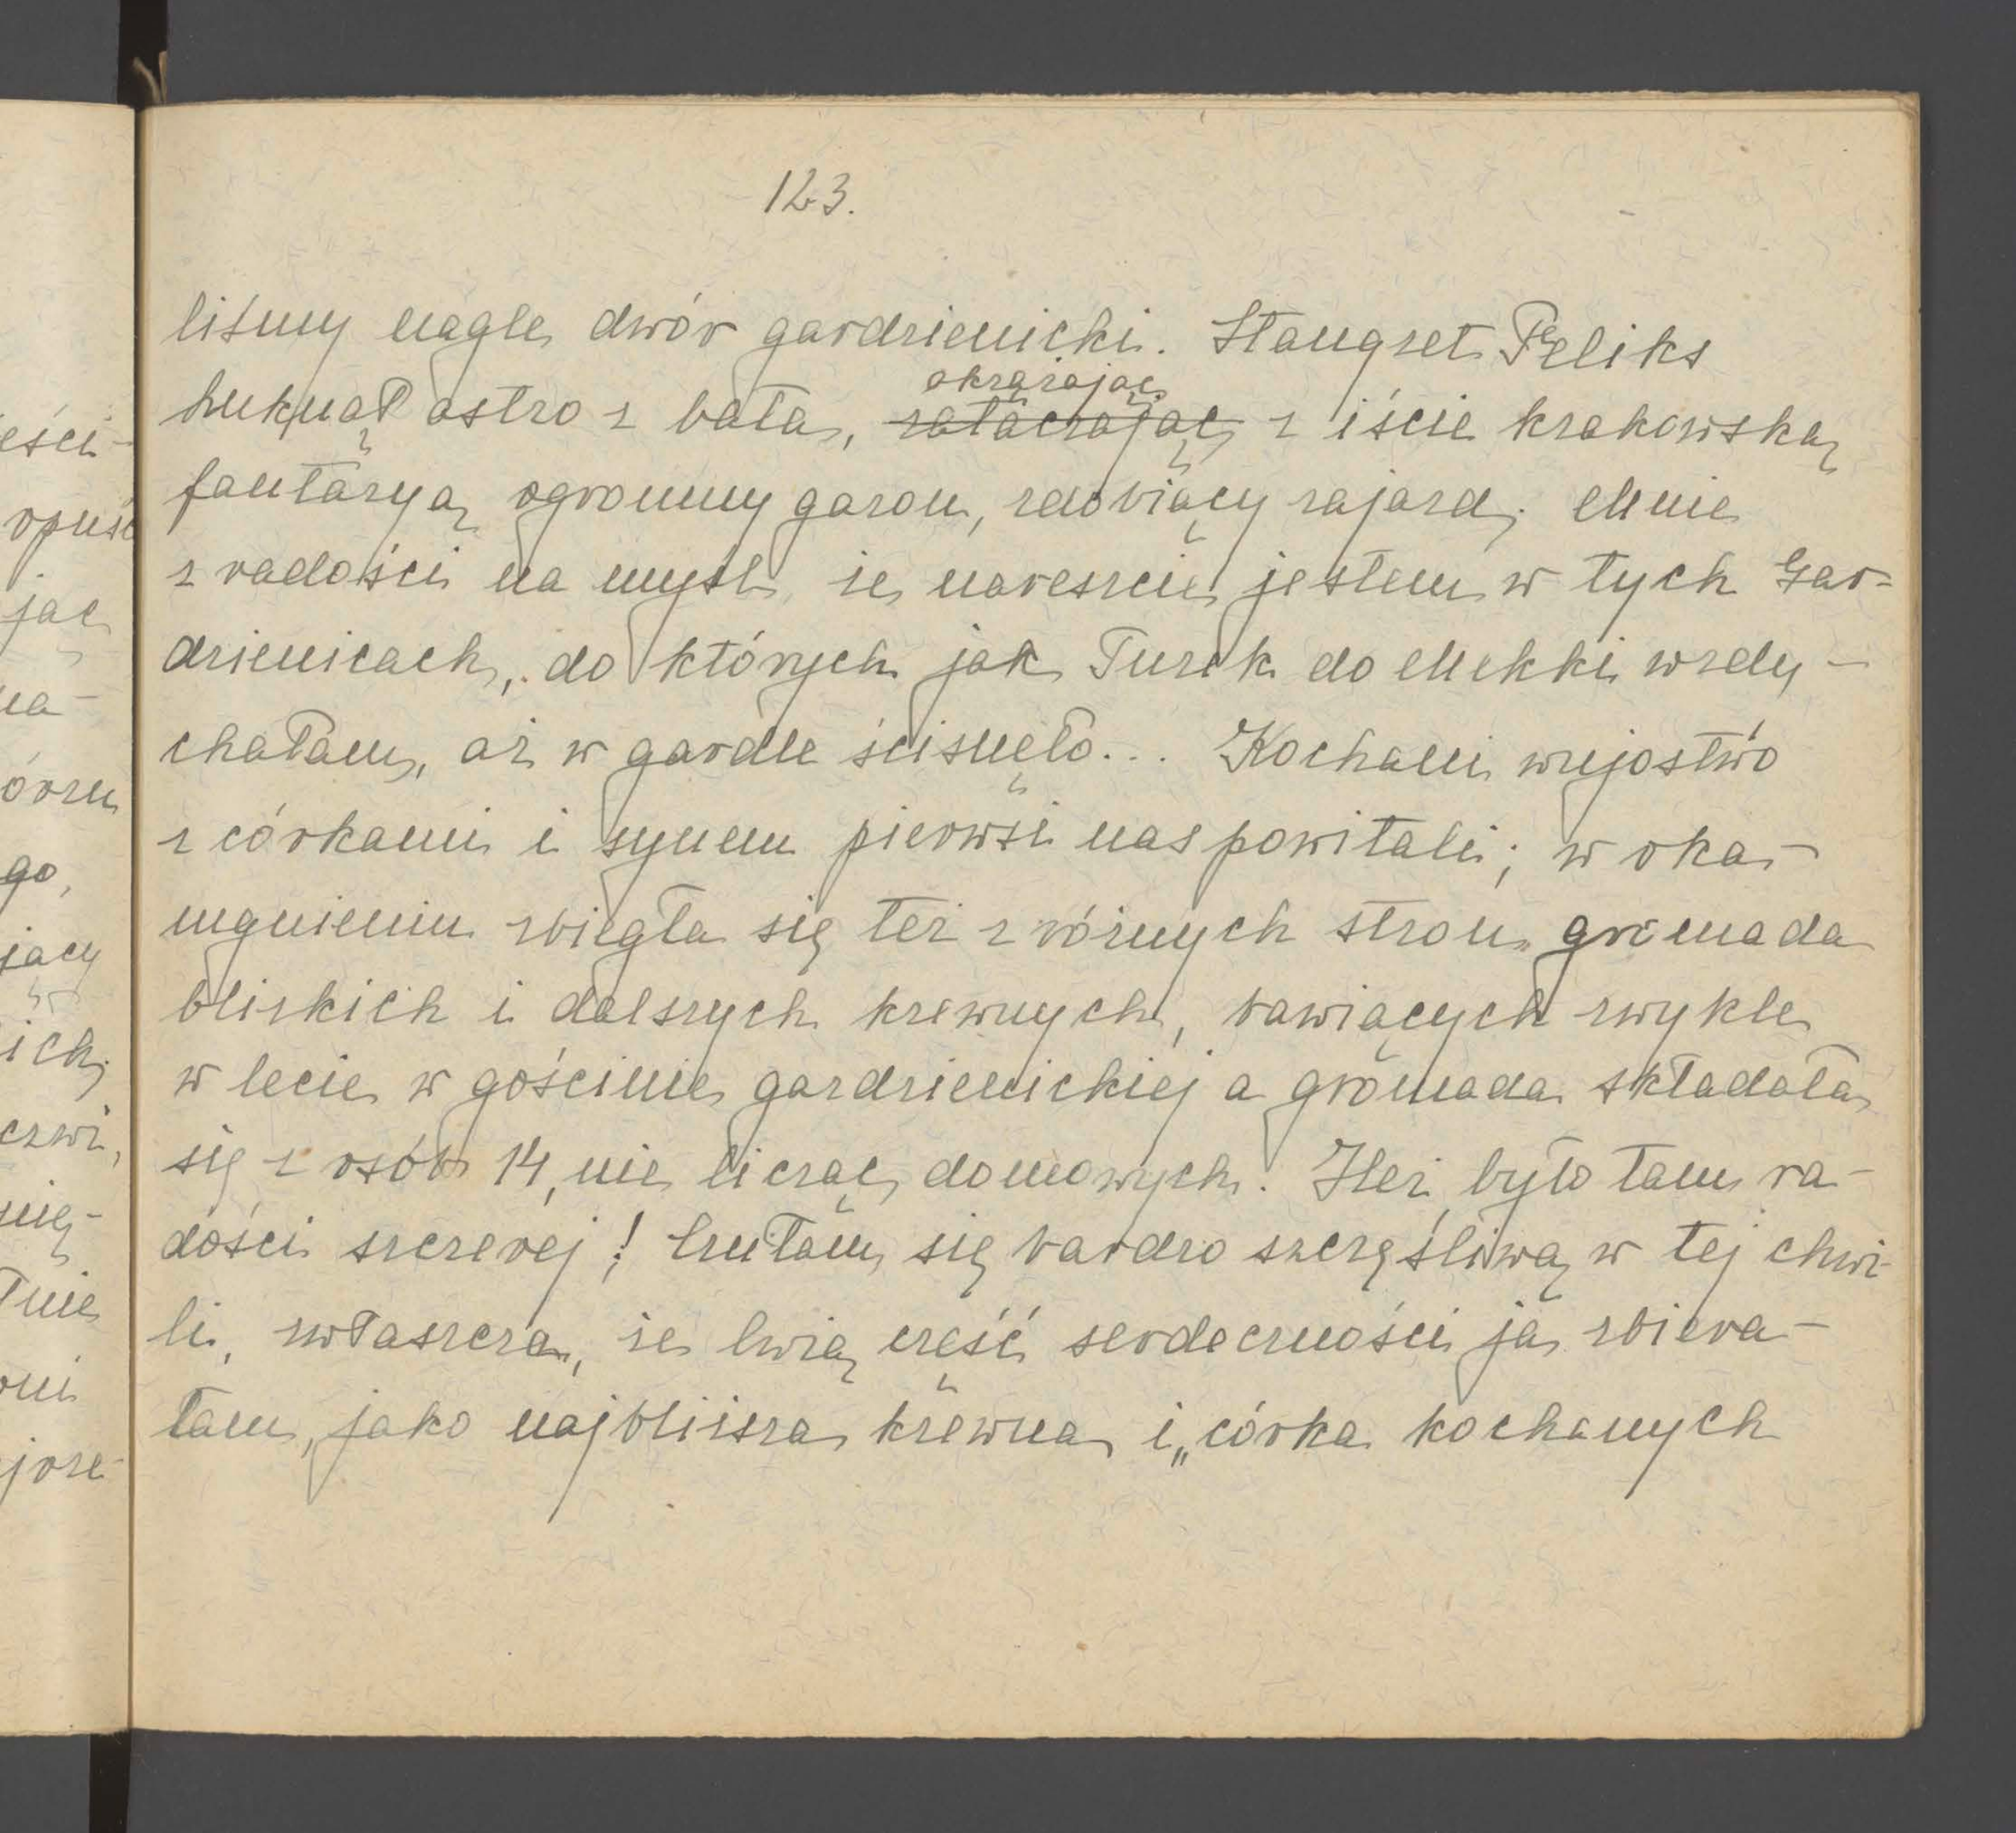 123.
liśmy nagle dwór gardzienicki. Stangret Feliks
huknął ostro z bata, okrążając
zataczając z iście krakowską
fantazyą ogromny gazon, zdobiący zajazd. Mnie
z radości na myśl, że nareszcie jestem w tych Gar-
dzienicach, do których jak Turek do Mekki wzdy-
chałam, aż w gardle ścisnęło... Kochani wujostwo
z córkami i synem pierwsi nas powitali; w oka-
mgnieniu zbiegła się też z różnych stron gromada
bliskich i dalszych krewnych, bawiących zwykle
w lecie w gościnie gardzienickiej a gromada składała
się z osób 14, nie licząc domowych. Ileż było tam ra-
dości szczerej! Czułam się bardzo szczęśliwą w tej chwi-
li, zwłaszcza, że lwią część serdeczności ja zbiera-
łam, jako najbliższa krewna i „córka kochanych
eści-
opuść
jąc
na-
órzu
go,
jący
ich,
czwi,
nię-
łnie
oni
jrze-